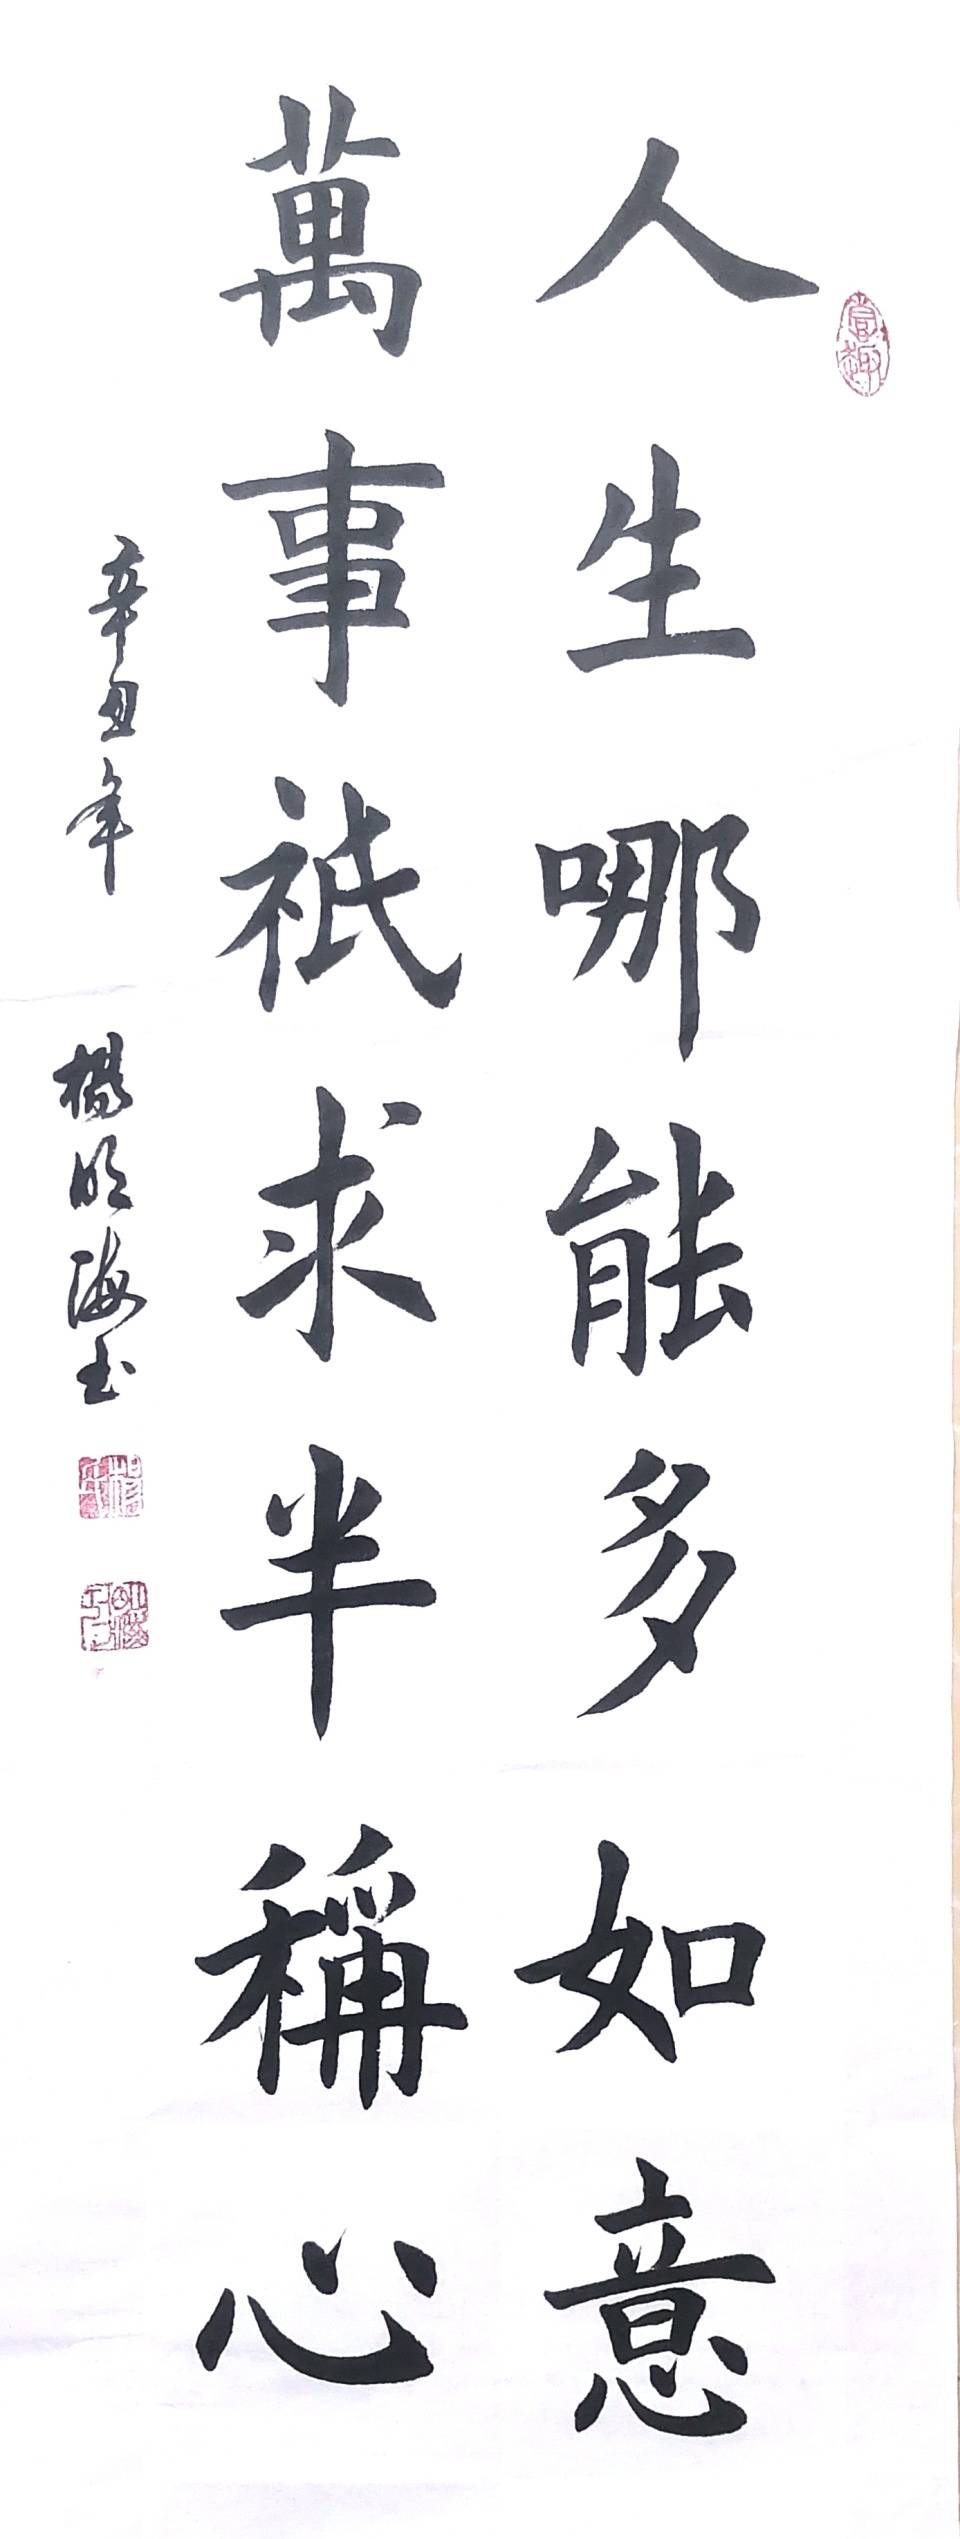 人生哪能多如意
萬事祇求半稱心
辛丑年 楊明海书